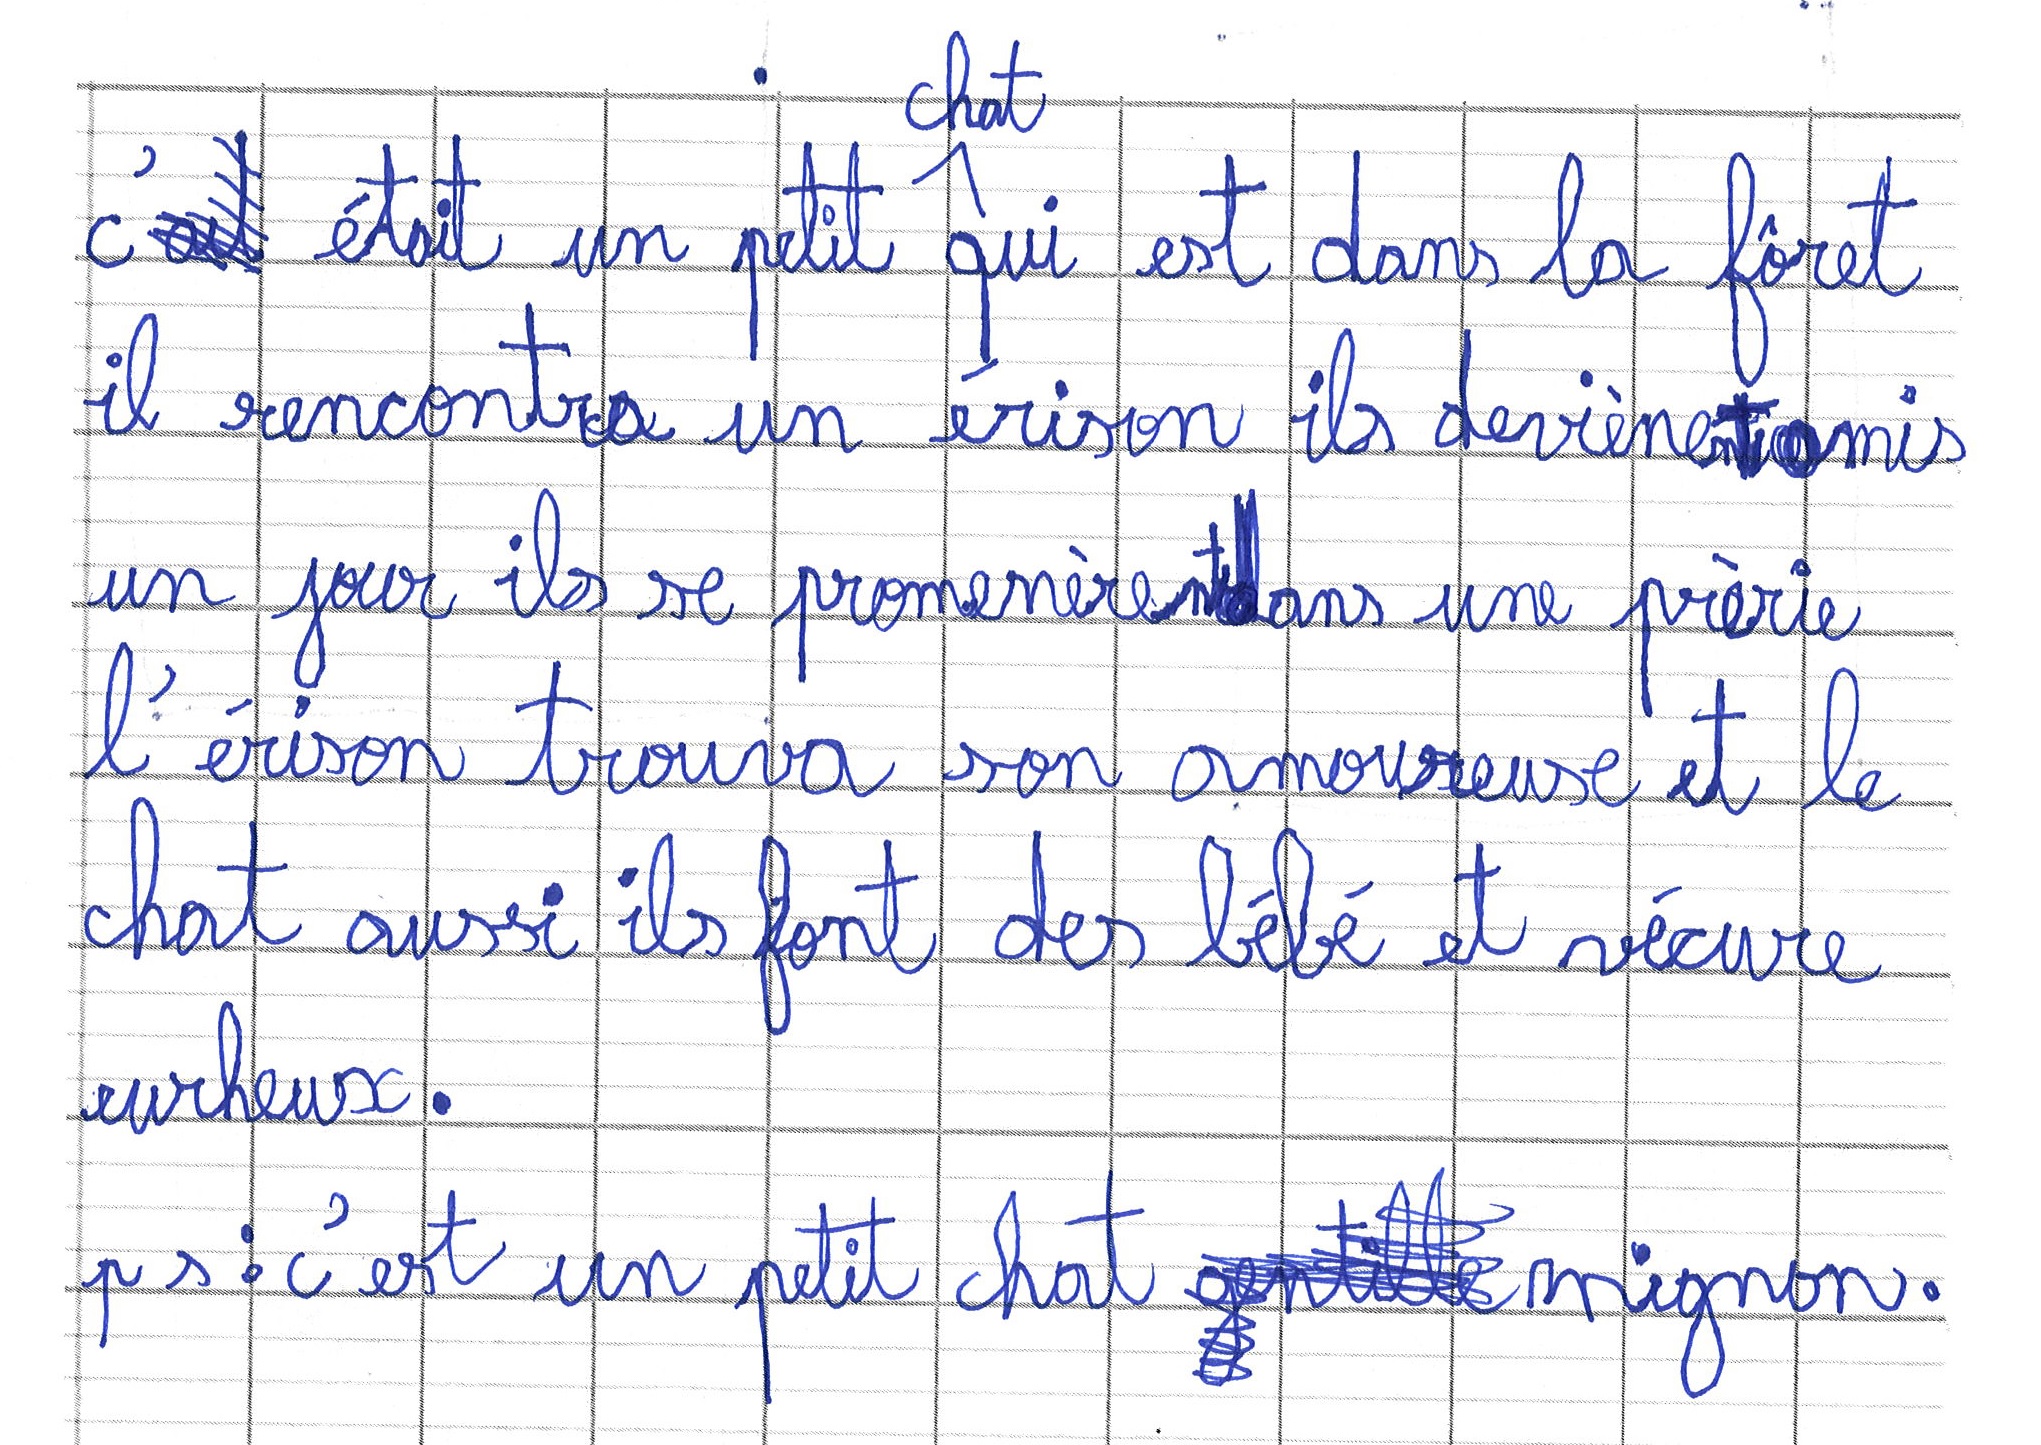 chat
c' était un petit qui est dans la fôret
il rencontra un érison ils deviènent amis
un jour ils se promenèrent dans une prèrie
l'érison trouva son amoureuse et le
chat aussi ils font des bébé et vécure
eurheux.
ps : c'est un petit chat mignon.